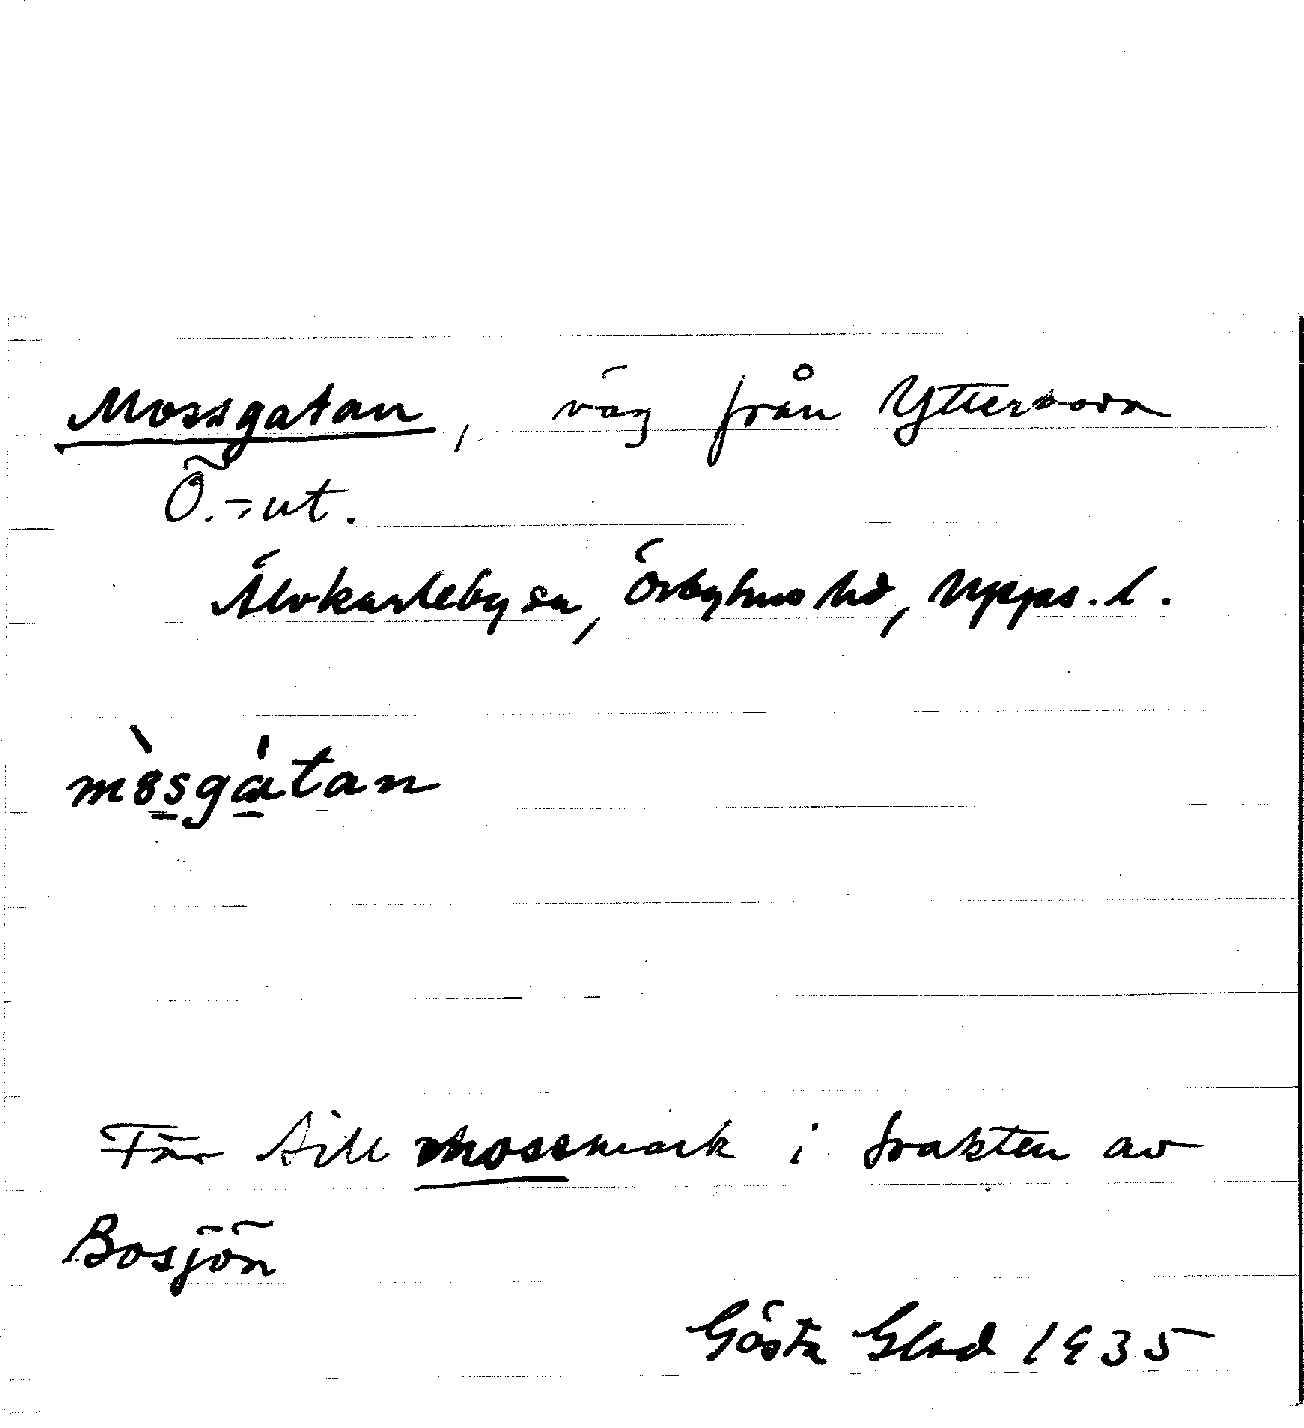 Mossgatan, väg från Ytterboda
Ö.-ut.
Älvkarleby sn, Örbyhus hd, Upps. l.
mòsgátan
För till mossmark i trakten av
Bosjön
Gösta Glad 1935